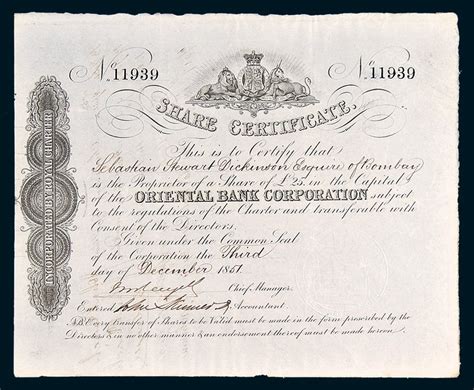 No. 11939
No. 11939
SHARE CERTIFICATE.
INCORPORATED BY ROYAL CHARTER
This is to Certify that
Sebastian Stewart Dickinson Esquire of Bombay
is the Proprietor of a Share of £25, in the Capital
of the ORIENTAL BANK CORPORATION subject
to the regulations of the Charter and transferable with
Consent of the Directors.
Given under the Common Seal
of the Corporation the Third
day of December 1851
Chief Manager.
Entered John Accountant.
N.B. Every transfer of Shares to be Valid must be made in the form prescribed by the
Directors & in no other manner & an endorsement thereof must be made hereon.